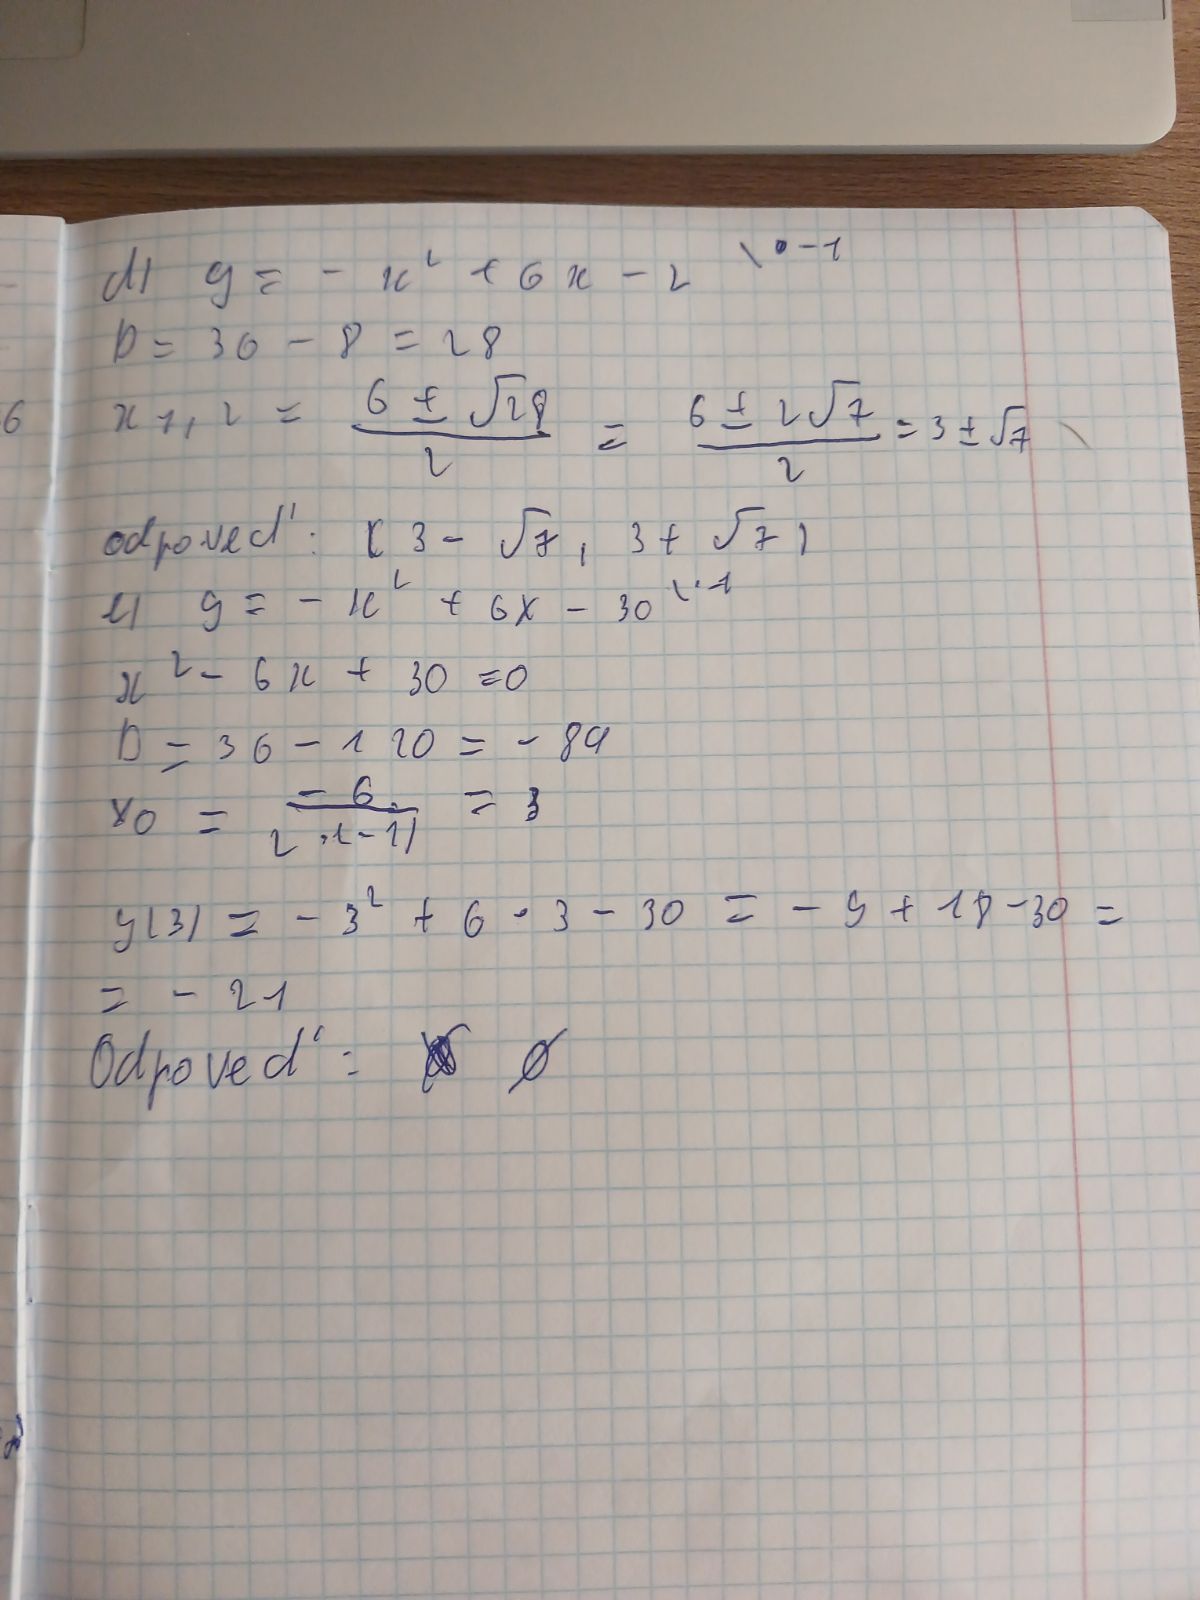 d) y = - x² + 6x - 2 \ · -1
D = 36 - 8 = 28
x1,2 = (6 ± √28)/2 = (6 ± 2√7)/2 = 3 ± √7
odpoveď: (3 - √7, 3 + √7)
e) y = - x² + 6x - 30 \ · -1
x² - 6x + 30 = 0
D = 36 - 120 = - 84
x0 = -6/(2·(-1)) = 3
y(3) = - 3² + 6 · 3 - 30 = - 9 + 18 - 30 =
= - 21
Odpoveď: ∅
6